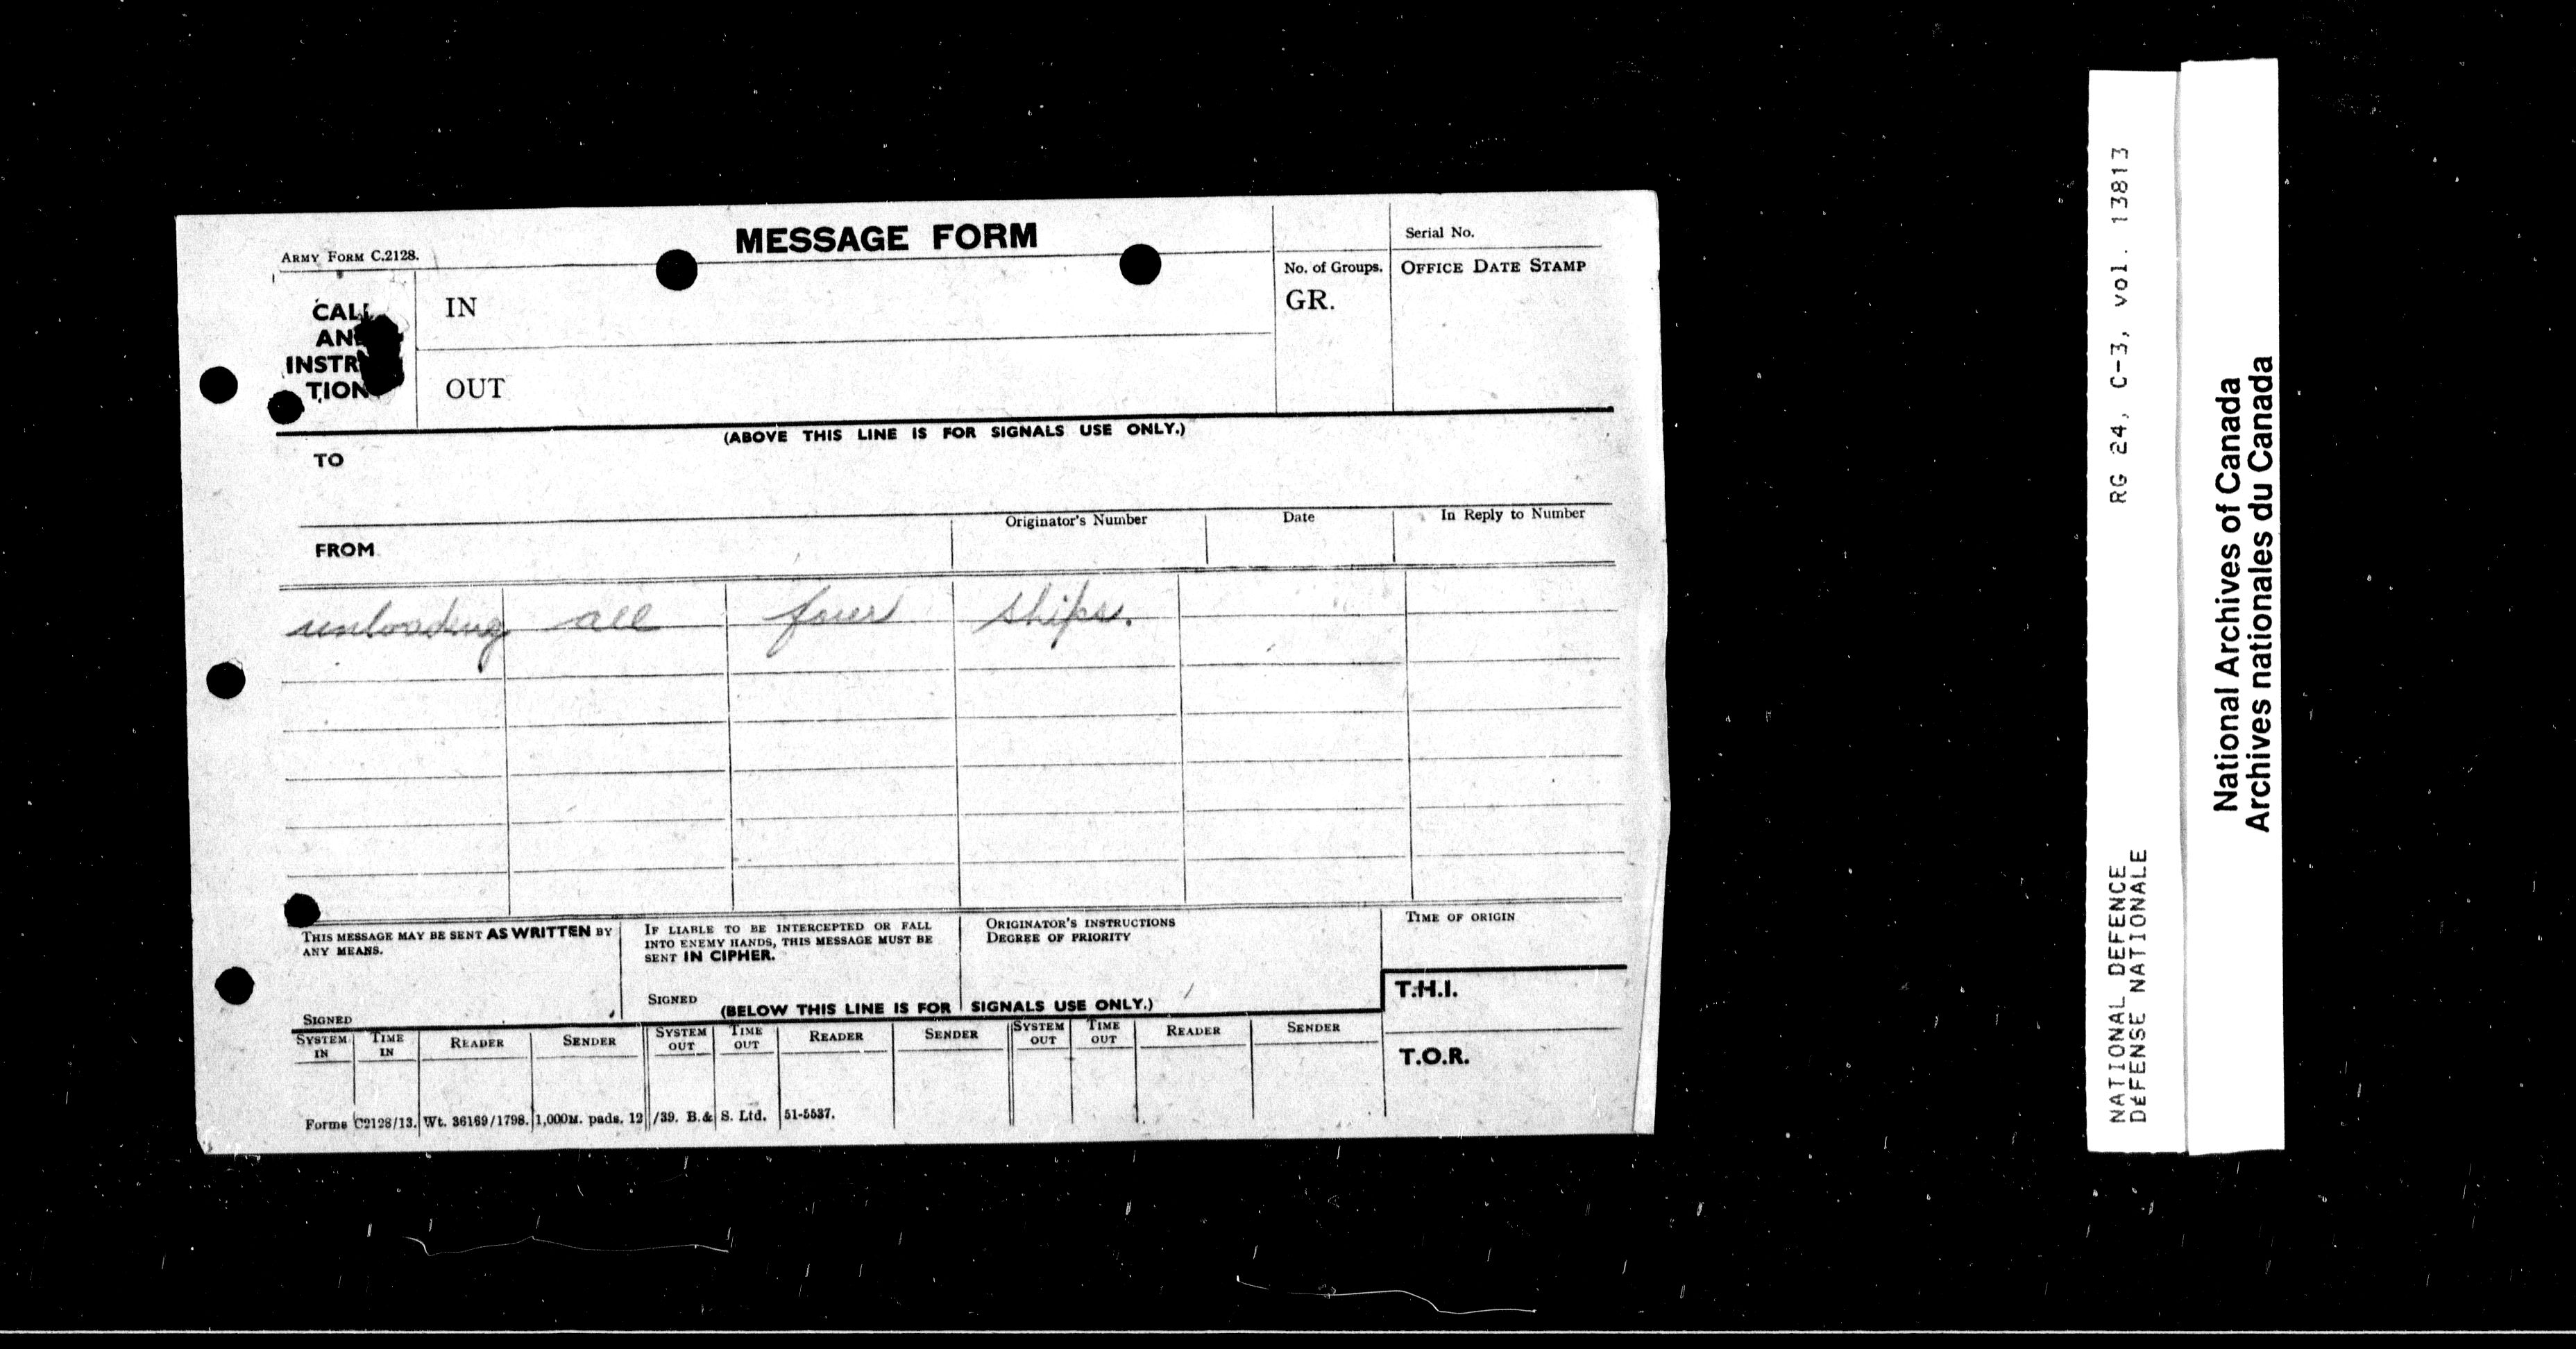 MESSAGE FORM
ARMY FORM C.2128.
Serial No.
CALL
AN
INSTR
TION
IN
No. of Groups.
OFFICE DATE STAMP
GR.
OUT
(ABOVE THIS LINE IS FOR SIGNALS USE ONLY.)
TO
FROM
Originator's Number
Date
In Reply to Number
unloading all four ships.
THIS MESSAGE MAY BE SENT AS WRITTEN BY
ANY MEANS.
SIGNED
IF LIABLE TO BE INTERCEPTED OR FALL
INTO ENEMY HANDS, THIS MESSAGE MUST BE
SENT IN CIPHER.
SIGNED
ORIGINATOR'S INSTRUCTIONS
DEGREE OF PRIORITY
TIME OF ORIGIN
(BELOW THIS LINE IS FOR SIGNALS USE ONLY.)
T.H.I.
SYSTEM IN
TIME IN
READER
SENDER
SYSTEM OUT
TIME OUT
READER
SENDER
SYSTEM OUT
TIME OUT
READER
SENDER
T.O.R.
Forms C2128/13. Wt. 36169/1798. 1,000M. pads. 12/39. B.& S. Ltd. 51-5537.
NATIONAL DEFENCE RG 24, C-3, vol. 13813
DÉFENSE NATIONALE
National Archives of Canada
Archives nationales du Canada